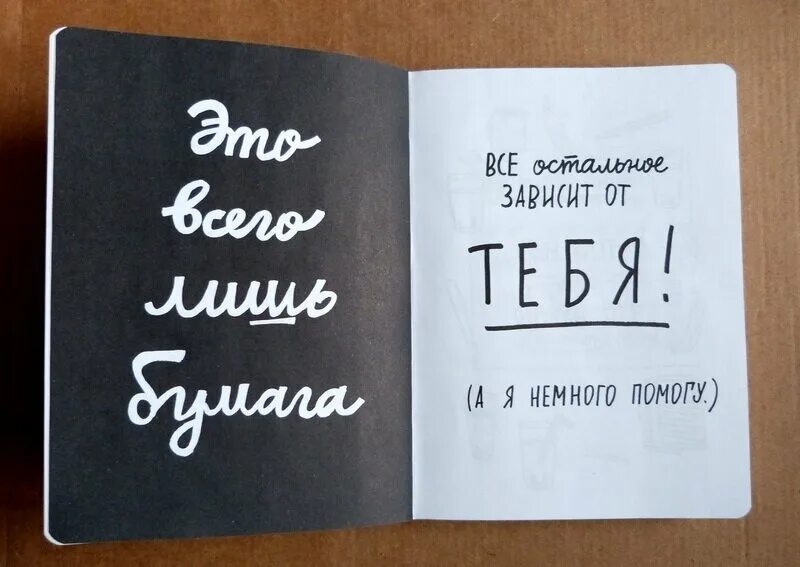 Это
всего
лишь
бумага
ВСЕ остальное
ЗАВИСИТ ОТ
ТЕБЯ!
(А Я НЕМНОГО ПОМОГУ.)